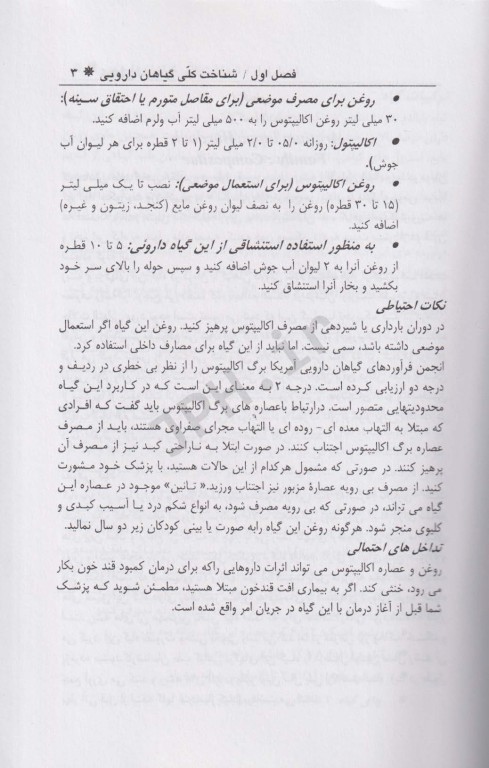 فصل اول / شناخت کلّی گیاهان دارویی ✵ ۳
• روغن برای مصرف موضعی (برای مفاصل متورم یا احتقاق سینه):
۳۰ میلی لیتر روغن اکالیپتوس را به ۵۰۰ میلی لیتر آب ولرم اضافه کنید.
• اکالیپتول: روزانه ۰۵/۰ تا ۲/۰ میلی لیتر (۱ تا ۲ قطره برای هر لیوان آب
جوش).
• روغن اکالیپتوس (برای استعمال موضعی): نصب تا یک میلی لیتر
(۱۵ تا ۳۰ قطره) روغن را به نصف لیوان روغن مایع (کنجد، زیتون و غیره)
اضافه کنید.
• به منظور استفاده استنشاقی از این گیاه دارونی: ۵ تا ۱۰ قطره
از روغن آنرا به ۲ لیوان آب جوش اضافه کنید و سپس حوله را بالای سر خود
بکشید و بخار آنرا استنشاق کنید.
نکات احتیاطی
در دوران بارداری یا شیردهی از مصرف اکالیپتوس پرهیز کنید. روغن این گیاه اگر استعمال
موضعی داشته باشد، سمی نیست. اما نباید از این گیاه برای مصارف داخلی استفاده کرد.
انجمن فرآوردهای گیاهان دارویی آمریکا برگ اکالیپتوس را از نظر بی خطری در ردیف و
درجه دو ارزیابی کرده است. درجه ۲ به معنای این است که در کاربرد این گیاه
محدودیتهایی متصور است. درارتباط باعصاره های برگ اکالیپتوس باید گفت که افرادی
که مبتلا به التهاب معده ای- روده ای یا التهاب مجرای صفراوی هستند، باید از مصرف
عصاره برگ اکالیپتوس اجتناب کنند. در صورت ابتلا به نارسایی کبد نیز از مصرف آن
پرهیز کنند. در صورتی که مشمول هرکدام از این حالات هستید، با پزشک خود مشورت
کنید. از مصرف بی رویه عصارۀ مزبور نیز اجتناب ورزید.« تانین» موجود در عصاره این
گیاه می تراند، در صورتی که بی رویه مصرف شود، به انواع شکم درد یا آسیب کبدی و
کلیوی منجر شود. هرگونه روغن این گیاه رابه صورت یا بینی کودکان زیر دو سال نمالید.
تداخل های احتمالی
روغن و عصاره اکالیپتوس می تواند اثرات داروهایی راکه برای درمان کمبود قند خون بکار
می رود، خنثی کند. اگر به بیماری افت قندخون مبتلا هستید، مطمئن شوید که پزشک
شما قبل از آغاز درمان با این گیاه در جریان امر واقع شده است.